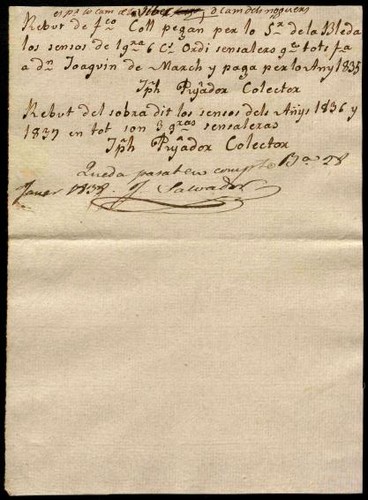 es pr lo Cam de
Rebut de fco Coll pagan per lo Sr de la Bleda
los sensos de 1 qra 6 Cs Ordi sensaleras q tots fa
a dn Joaquin de March y paga per lo Any 1835
Jph Pujador Colector
Rebut del sobra dit los sensos dels Añys 1836 y
1837 en tot son 3 qras sensaleras
Jph Pujador Colector
Queda pasat en compte Bna 28
Janer 1838. J Salvador